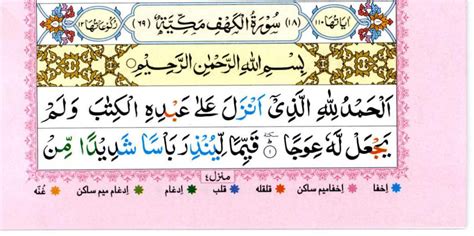 اٰیاتھا ۱۱۰ (۱۸) سُوْرَةُ الْكَهْفِ مَكِّيَّةٌ (۶۹) رُكُوْعَاتُهَا ۱۲
بِسْمِ اللهِ الرَّحْمٰنِ الرَّحِيْمِ
اَلْحَمْدُ لِلّٰهِ الَّذِىْۤ اَنْزَلَ عَلٰى عَبْدِهِ الْكِتٰبَ وَلَمْ
يَجْعَلْ لَّهٗ عِوَجًا ۱ قَيِّمًا لِّيُنْذِرَ بَاْسًا شَدِيْدًا مِّنْ
منزل ۴
اخفا اخفامیم ساکن قلقلہ قلب ادغام ادغام میم ساکن غُنّہ